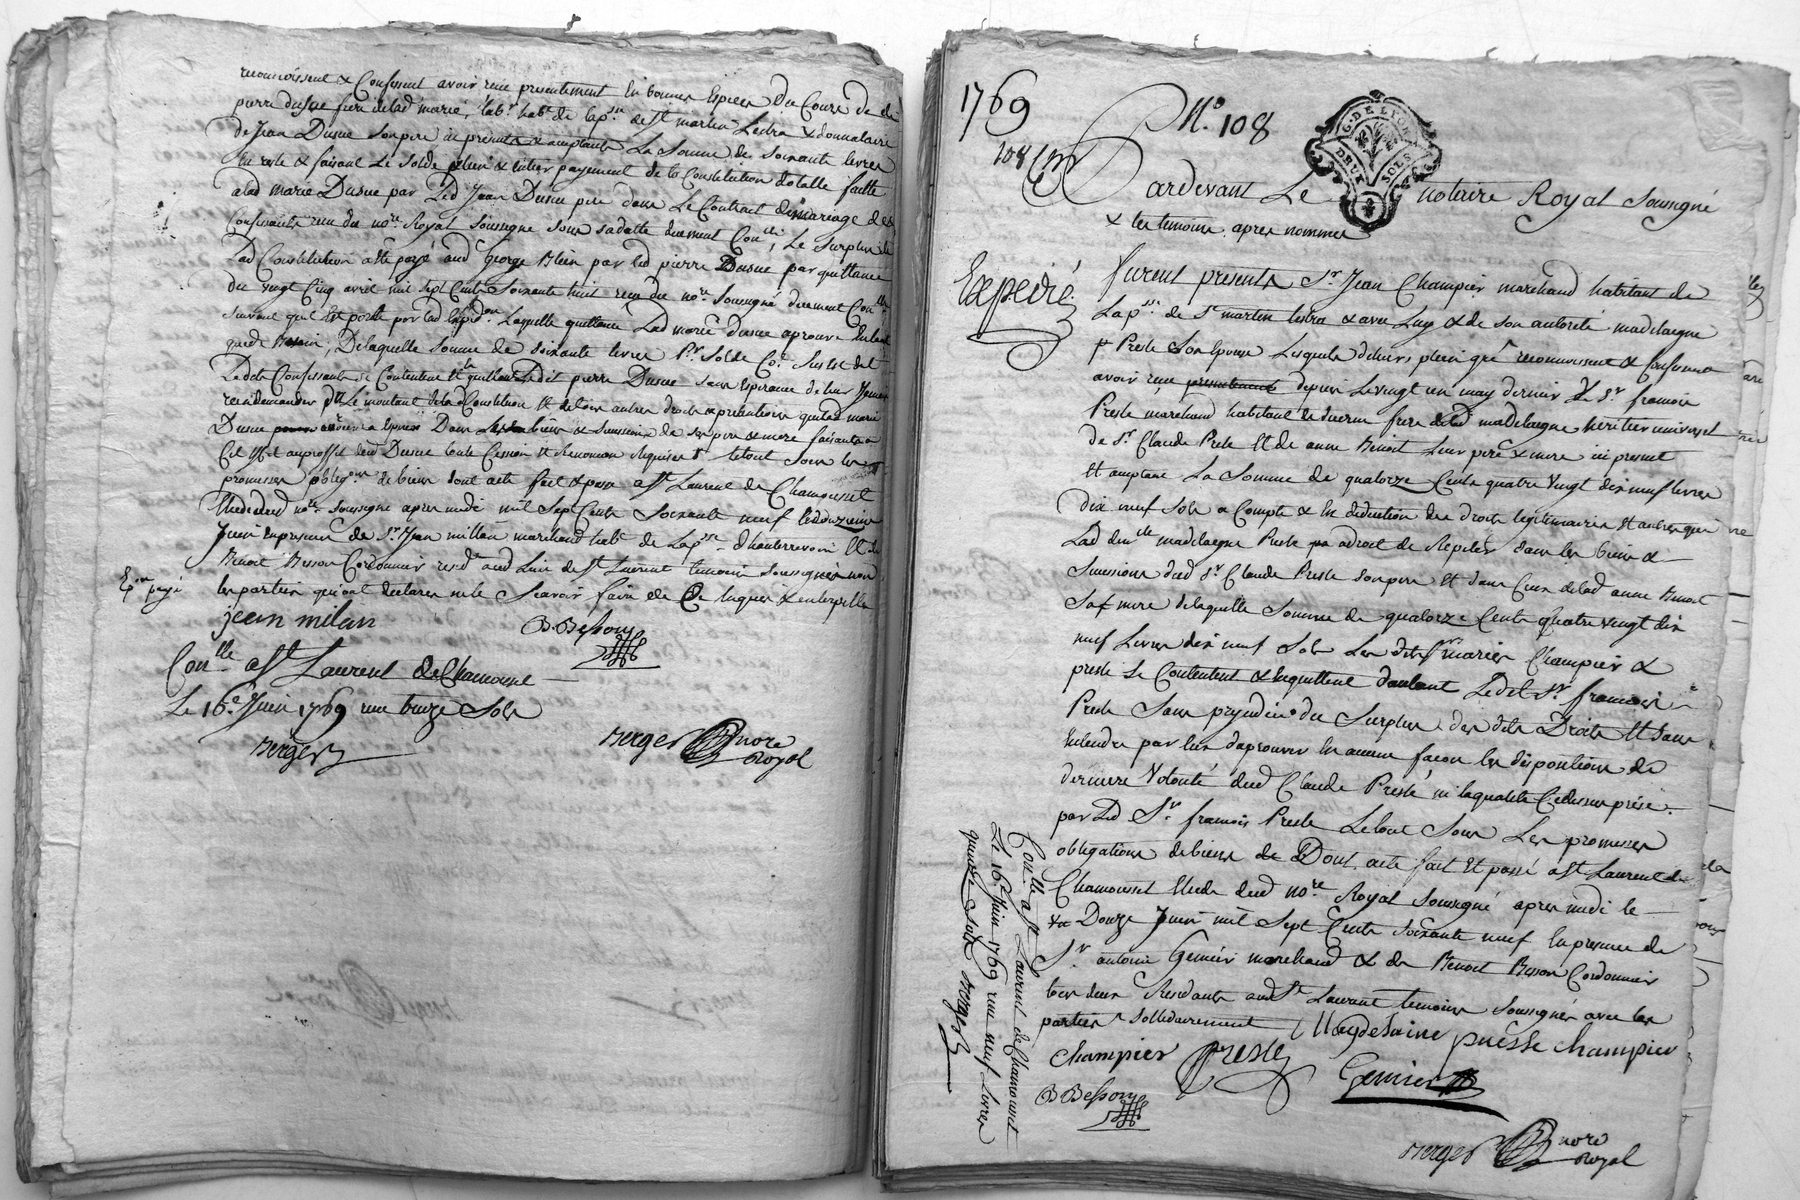 reconnoissent & Confessent avoir reçu presentement En bonnes Especes Du Cours de
pierre dusue frere delad marie, lab.r hab.t de lap.sse de St martin Lestra & donnataire
de Jean Dusue son pere ici present & acceptant La Somme de soixante livres
En reste & faisant Le Solde plein & entier payement de la Constitution dotalle faitte
alad marie Dusue par Led Jean Dusue pere dans Le Contract demariage des
Confessants recu du no.re Royal soussigné sous sadatte duement Con.llé, Le Surplus de
Lad Constitution a été payé aud George Blein par led pierre Dusue par quittance
du vingt Cinq avril mil sept Cents Soixante huit recu du no.re Soussigné duement Con.llé
suivant quil Est porté par lad Laquelle quittance Lad marie Dusue aprouve
Delaquelle somme de soixante livres P.r Solde
Lesdits Confessants se Contentent Et quittent Ledit pierre Dusue sans Esperance de leur
rien demander Le montant delad Constitution Et de tous autres droits & pretentions quelad marie
Dusue Dans les biens & successions de ses pere & mere faisants
Cet Effet au proffit dud Dusue toute Cession Et Renonciation Requises Letout sous les
promesses oblig.ons de biens dont acte fait & passé a St Laurent de Chamousset
Etude dud no.re Soussigné apres midi mil Sept Cents Soixante neuf Ledouzieme
Juin En presence de Sr Jean millan marchand hab.t de Lap.sse d'hauterivoire Et de
Benoit Besson Cordonnier resid.t aud Lieu de St Laurent temoins Soussignés non
les parties qui ont declarés ne le Scavoir faire de Ce Enquis & interpellés
Ex.on payé
jean milan
B. Besson
Con.llé a St Laurent de Chamousset
Le 16.e Juin 1769 recu treize Sols
Berger
Berger nore Royal
1769
N.o 108
108
G. DE LYON
DEUX SOLS
Pardevant Le notaire Royal Soussigné
& les temoins apres nommés
Expedié
furent presents Sr Jean Champier marchand habitant de
La p.sse de St martin lestra & avec Luy & de son autorité madelaegne
Preste Son Epouse Lesquels deleurs plein gré reconnoissent & Confessent
avoir reçu presentement depuis Le vingt un may dernier de Sr francois
Preste marchand habitant frere delad madelaegne heritier universel
de Sr Claude Preste Et de anne Benoit Leur pere & mere ici present
Et acceptant La Somme de quatorze Cents quatre Vingt dix neuf livres
Dix neuf Sols a Compte & En deduction des droits legitimaires Et autres que
Lad dem.lle madelaegne Preste a droit de Repeter dans les biens &
Successions dud Sr Claude Preste Son pere Et dans Ceux delad anne Benoit
Sa mere delaquelle Somme de quatorze Cents quatre vingt dix
neuf Livres dix neuf Sols Les dits mariés Champier &
preste Se Contentent & En quittent Ledit Sr francois
Preste Sans prejudice du Surplus des dits Droits Et Sans
Entendre par Eux daprouver En aucune facon Les dispositions de
derniere Volonté dud Claude Preste ni la qualité Cy dessus prise
par Led Sr francois Preste Letout Sous Les promesses
obligations de biens Dont acte fait Et passé a St Laurent de
Chamousset Etude dud no.re Royal Soussigné apres midi le
Douze Juin mil Sept Cents Soixante neuf En presence de
Sr antoine Genier marchand & de Benoit Besson Cordonnier
tous deux Residants aud St Laurent temoins Soussignés avec les
parties Sollidairement
Champier Preste Champier
Genier
B. Besson
Berger nore Royal
Con.llé a St Laurent de Chamousset
Le 16.e Juin 1769 recu neuf Livres
quinze Sols Berger